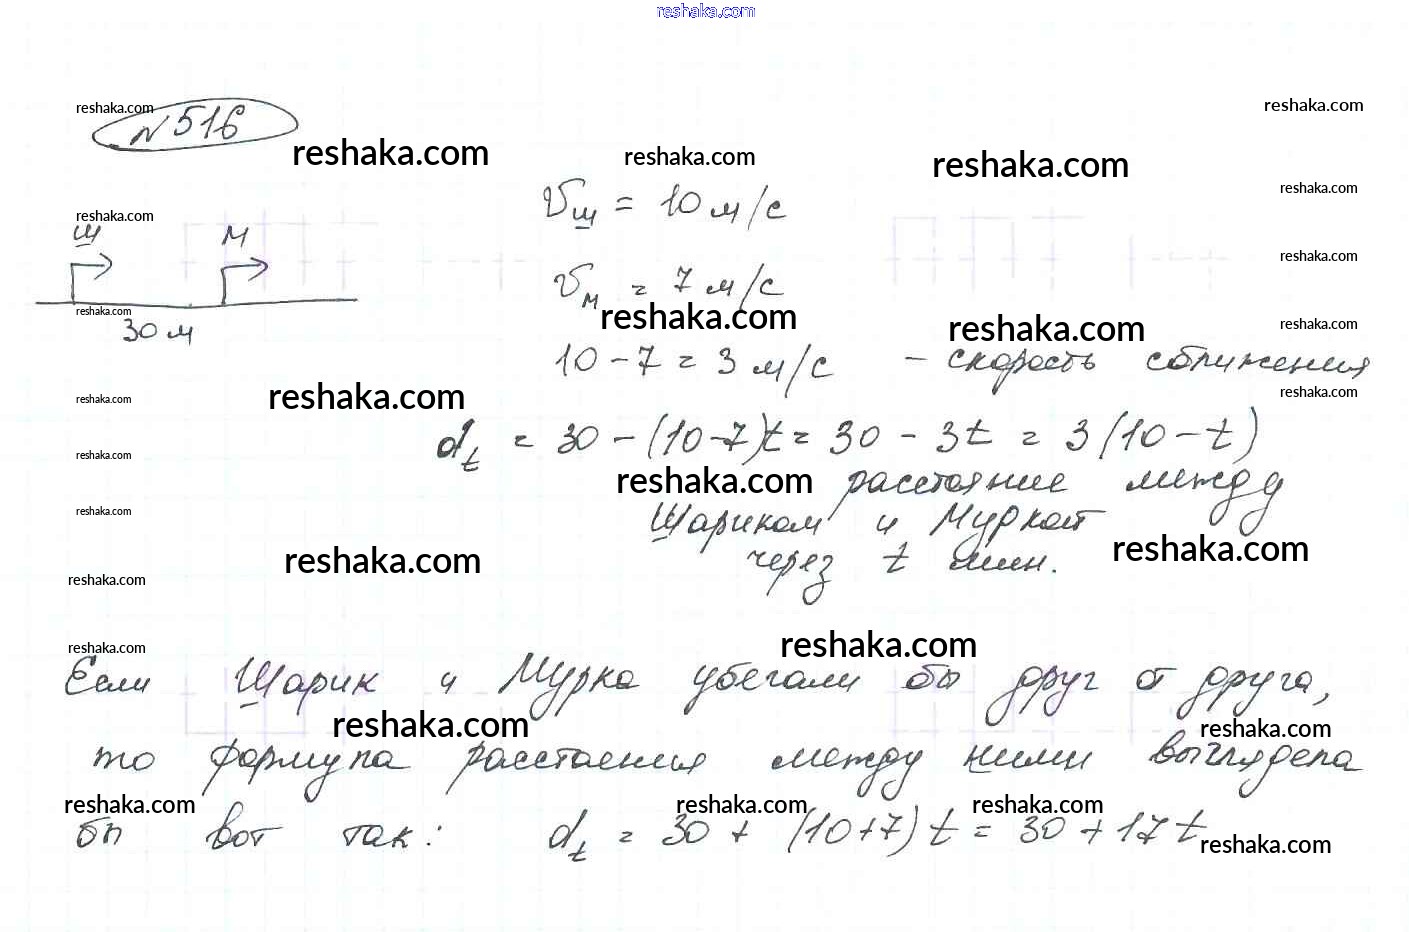 reshaka.com
reshaka.com
N 516
reshaka.com
reshaka.com
reshaka.com
reshaka.com
reshaka.com
reshaka.com
Vш = 10 м/с
reshaka.com
Ш М
reshaka.com
Vм = 7 м/с
reshaka.com
reshaka.com
reshaka.com
reshaka.com
30 м
10 - 7 = 3 м/с - скорость сближения
reshaka.com
reshaka.com
reshaka.com
dt = 30 - (10-7)t = 30 - 3t = 3(10 - t)
reshaka.com
reshaka.com
расстояние между
reshaka.com
Шариком и Муркой
reshaka.com
reshaka.com
через t мин.
reshaka.com
reshaka.com
reshaka.com
Если Шарик и Мурка убегали бы друг от друга,
reshaka.com
reshaka.com
то формула расстоения между ними выглядела
reshaka.com
reshaka.com
reshaka.com
бы вот так: dt = 30 + (10+7)t = 30 + 17t
reshaka.com